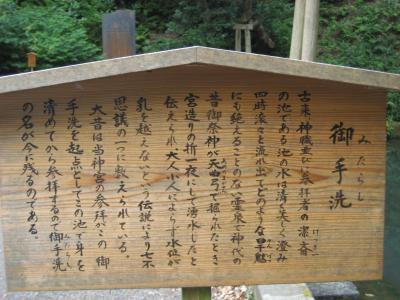 御手洗
みたらし
古来、神職並びに参拝者の潔斎
けっさい
の池である池の水は清く美しく澄み
四時滾々と流れ出てどのような旱魃
にも絶えることのない霊泉で神代の
昔御祭神が天曲弓で掘られたとき
宮造りの折一夜にして湧水したと
伝えられ大人小人によらず水位が
乳を越えないという伝説により七不
思議の一に数えられている。
大昔は当神宮の参拝がこの御
手洗を起点としてこの池で身を
清めてから参拝するので御手洗
みたらし
の名が今に残るのである。